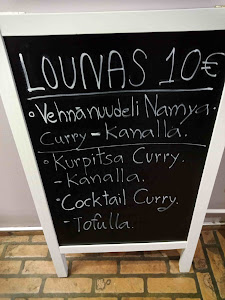 LOUNAS 10€
• Vehnänuudeli Namya.
Curry - Kanalla.
• Kurpitsa Curry.
- Kanalla.
• Cocktail Curry.
- Tofulla.